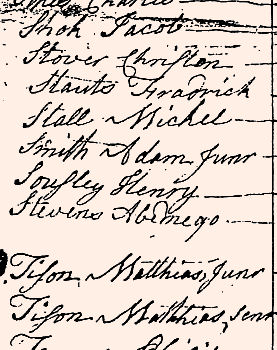 Charles
Shoh Jacob
Stover Christen
Stauts Fradrick
Stall Michel
Smith Adam Junr
Sousley Henry
Stevens Abednego
Tison, Matthias, Junr
Tison Matthias, Senr